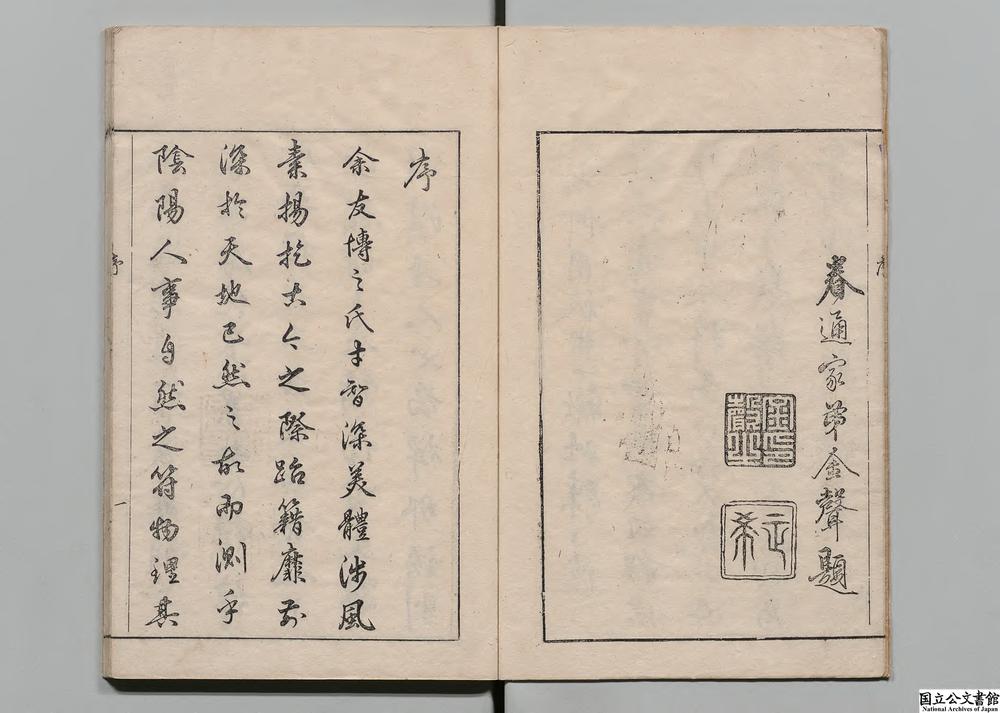 眷通家弟金聲題
金聲之印
正希
序
余友博之氏才智深美體涉風
素揚扢古今之際跆籍靡前
深於天地已然之故而測乎
陰陽人事自然之符物理其
序
一
国立公文書館
National Archives of Japan